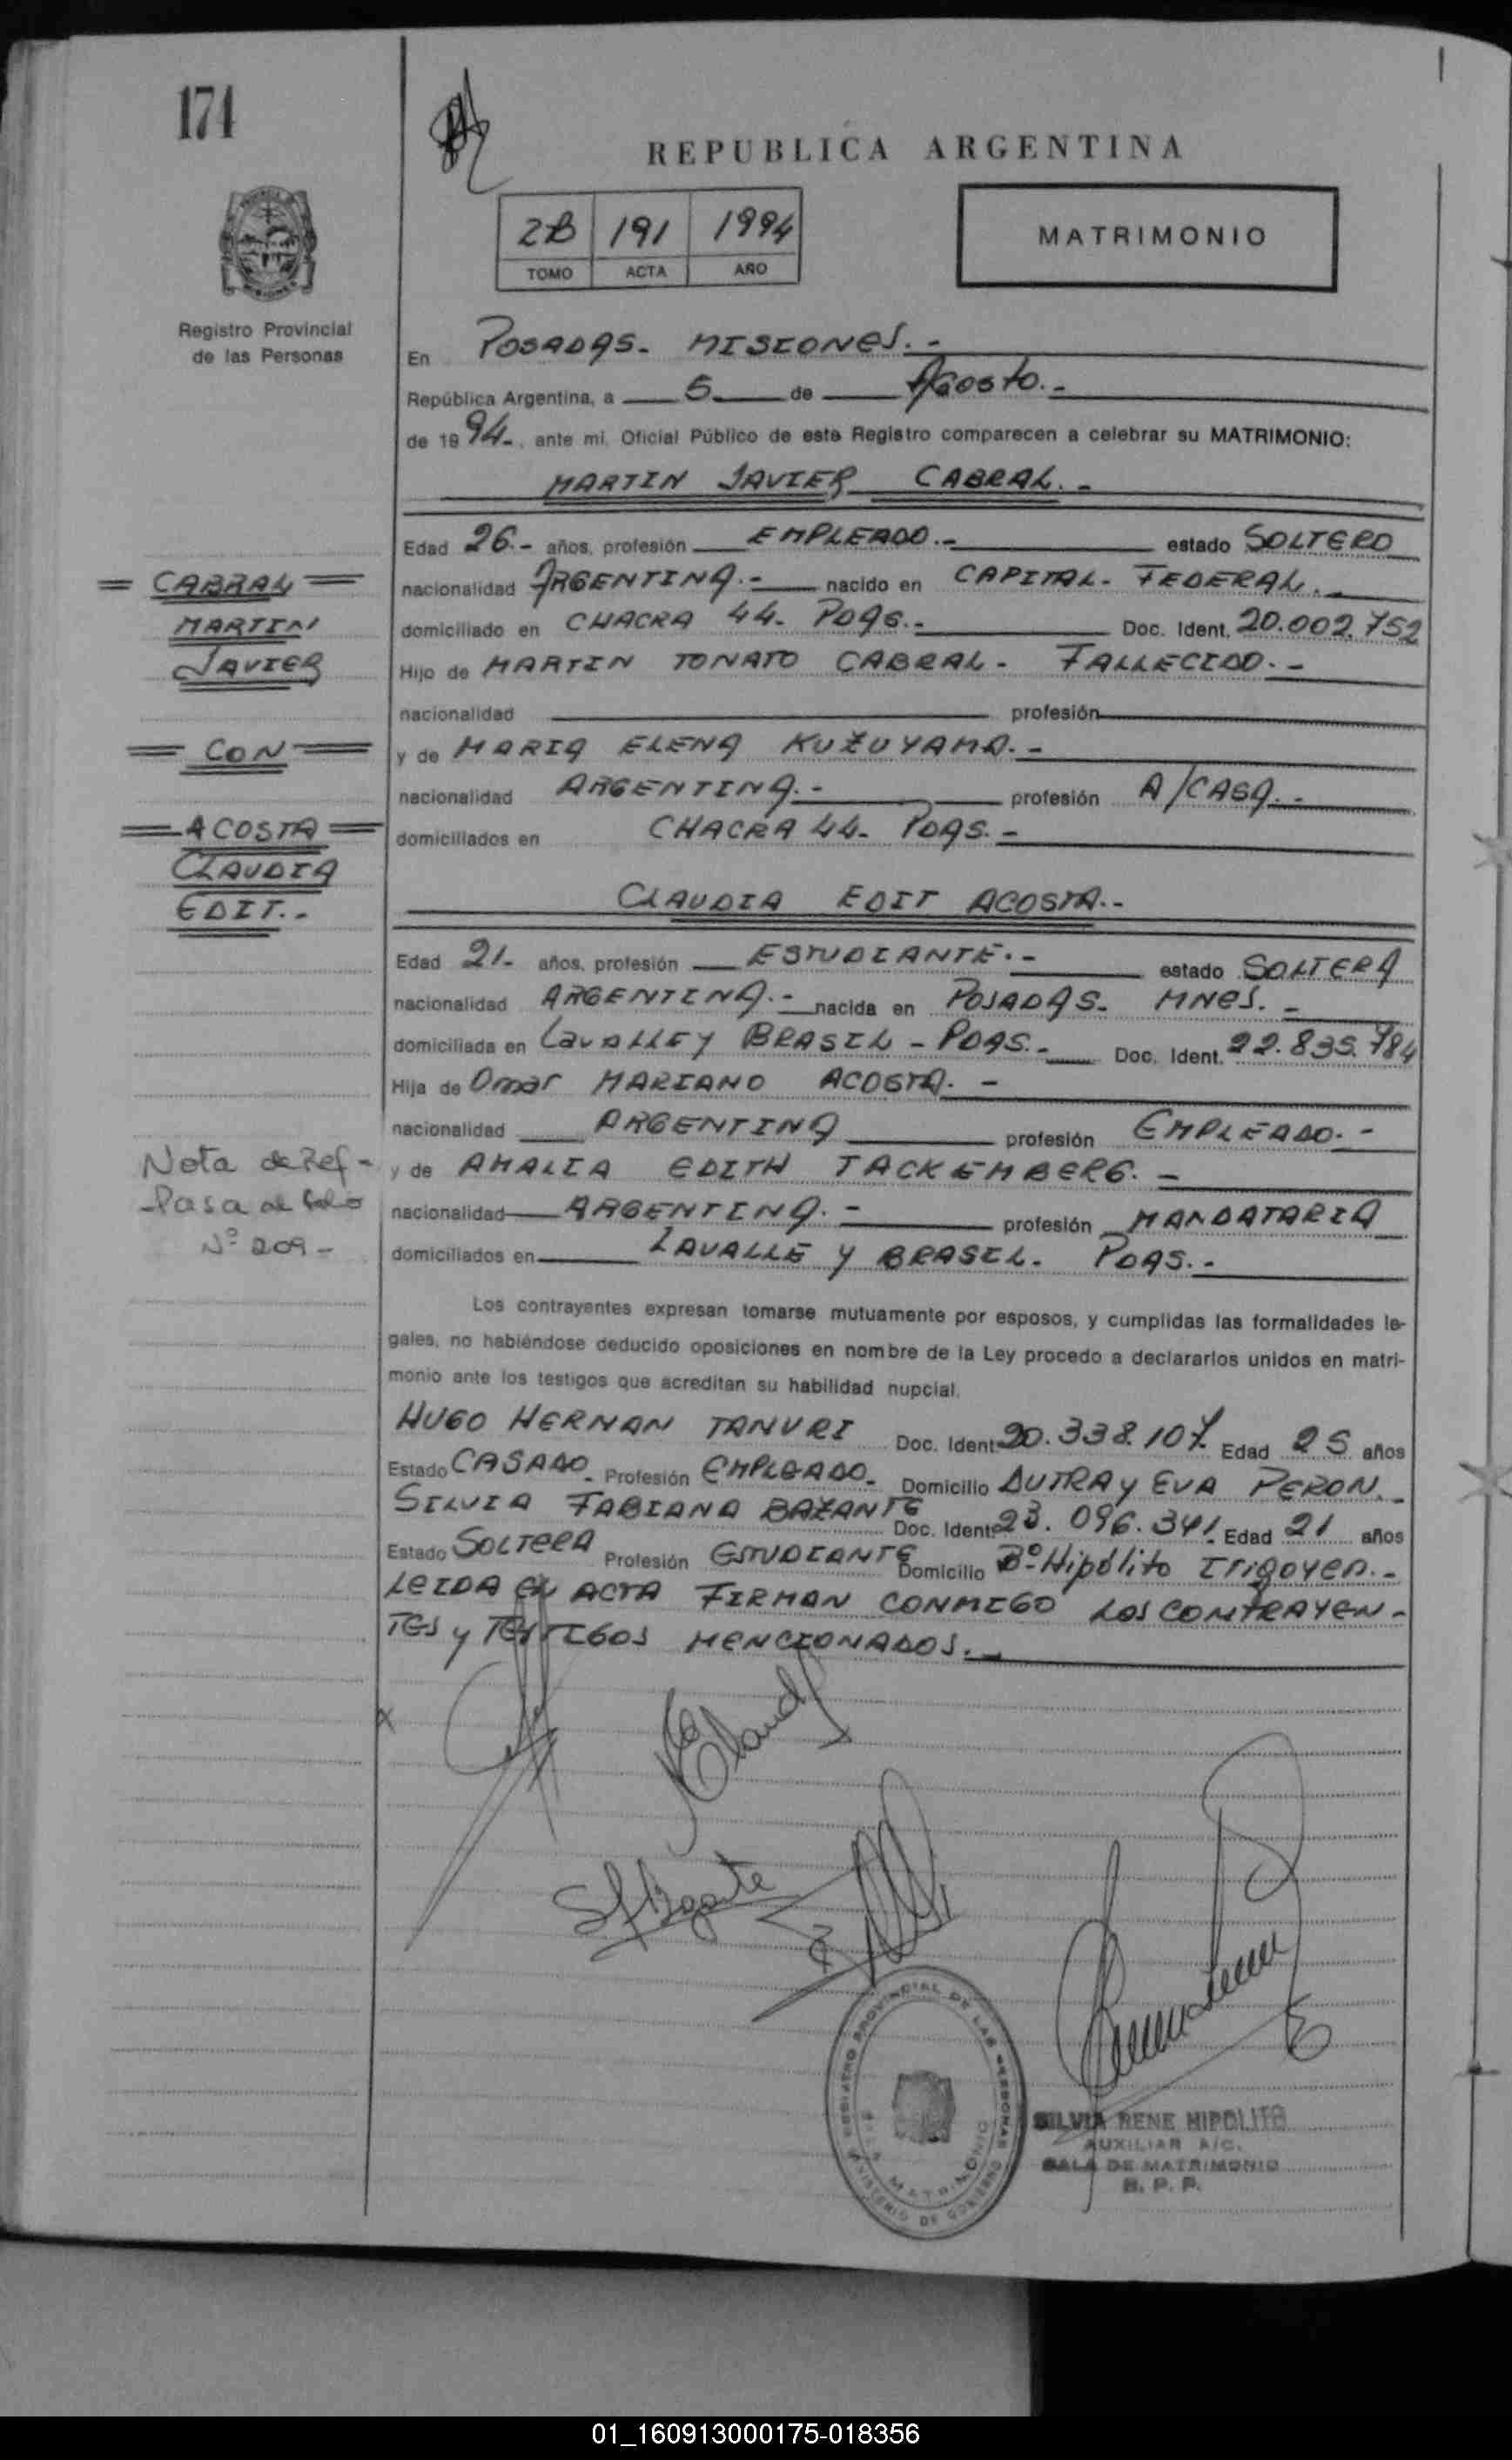 174
REPUBLICA ARGENTINA
2B 191 1994
TOMO ACTA AÑO
MATRIMONIO
Registro Provincial
de las Personas
En POSADAS. MISIONES.-
República Argentina, a 5 de Agosto.-
de 1994-, ante mí, Oficial Público de este Registro comparecen a celebrar su MATRIMONIO:
MARTIN JAVIER CABRAL.-
Edad 26.- años, profesión EMPLEADO.- estado SOLTERO
nacionalidad ARGENTINA.- nacido en CAPITAL-FEDERAL.-
domiciliado en CHACRA 44- PDAS.- Doc. Ident. 20.002.752
Hijo de MARTIN TONATO CABRAL- FALLECIDO.-
nacionalidad profesión
y de MARIA ELENA KUZUYAMA.-
nacionalidad ARGENTINA.- profesión A/CASA.-
domiciliados en CHACRA 44- PDAS.-
= CABRAL =
MARTIN
JAVIER
= CON =
= ACOSTA =
CLAUDIA
EDIT.-
CLAUDIA EDIT ACOSTA.-
Edad 21- años, profesión ESTUDIANTE.- estado SOLTERA
nacionalidad ARGENTINA.- nacida en POSADAS- MNES.-
domiciliada en LAVALLEY BRASIL - PDAS.- Doc. Ident. 22.835.784
Hija de Omar MARIANO ACOSTA.-
nacionalidad ARGENTINA profesión EMPLEADO.-
y de AMALIA EDITH TACKEMBERG.-
nacionalidad ARGENTINA.- profesión MANDATARIA
domiciliados en LAVALLE y BRASIL. PDAS.-
Nota de Ref-
Pasa al folio
Nº 209-
Los contrayentes expresan tomarse mutuamente por esposos, y cumplidas las formalidades le-
gales, no habiéndose deducido oposiciones en nombre de la Ley procedo a declararlos unidos en matri-
monio ante los testigos que acreditan su habilidad nupcial.
HUGO HERNAN TANURI Doc. Ident. 20.338.107. Edad 25 años
Estado CASADO- Profesión EMPLEADO- Domicilio DUTRA y EVA PERON.-
SILVIA FABIANA BAZANTE Doc. Ident. 23.096.341. Edad 21 años
Estado SOLTERA Profesión ESTUDIANTE Domicilio Bº Hipólito Irigoyen.-
LEIDA EL ACTA FIRMAN CONMIGO LOS CONTRAYEN-
TES y TESTIGOS MENCIONADOS.-
REGISTRO PROVINCIAL DE LAS PERSONAS
SALA MATRIMONIO
MINISTERIO DE GOBIERNO
SILVIA RENE HIPOLITO
AUXILIAR A/C.
SALA DE MATRIMONIO
R. P. P.
01_160913000175-018356